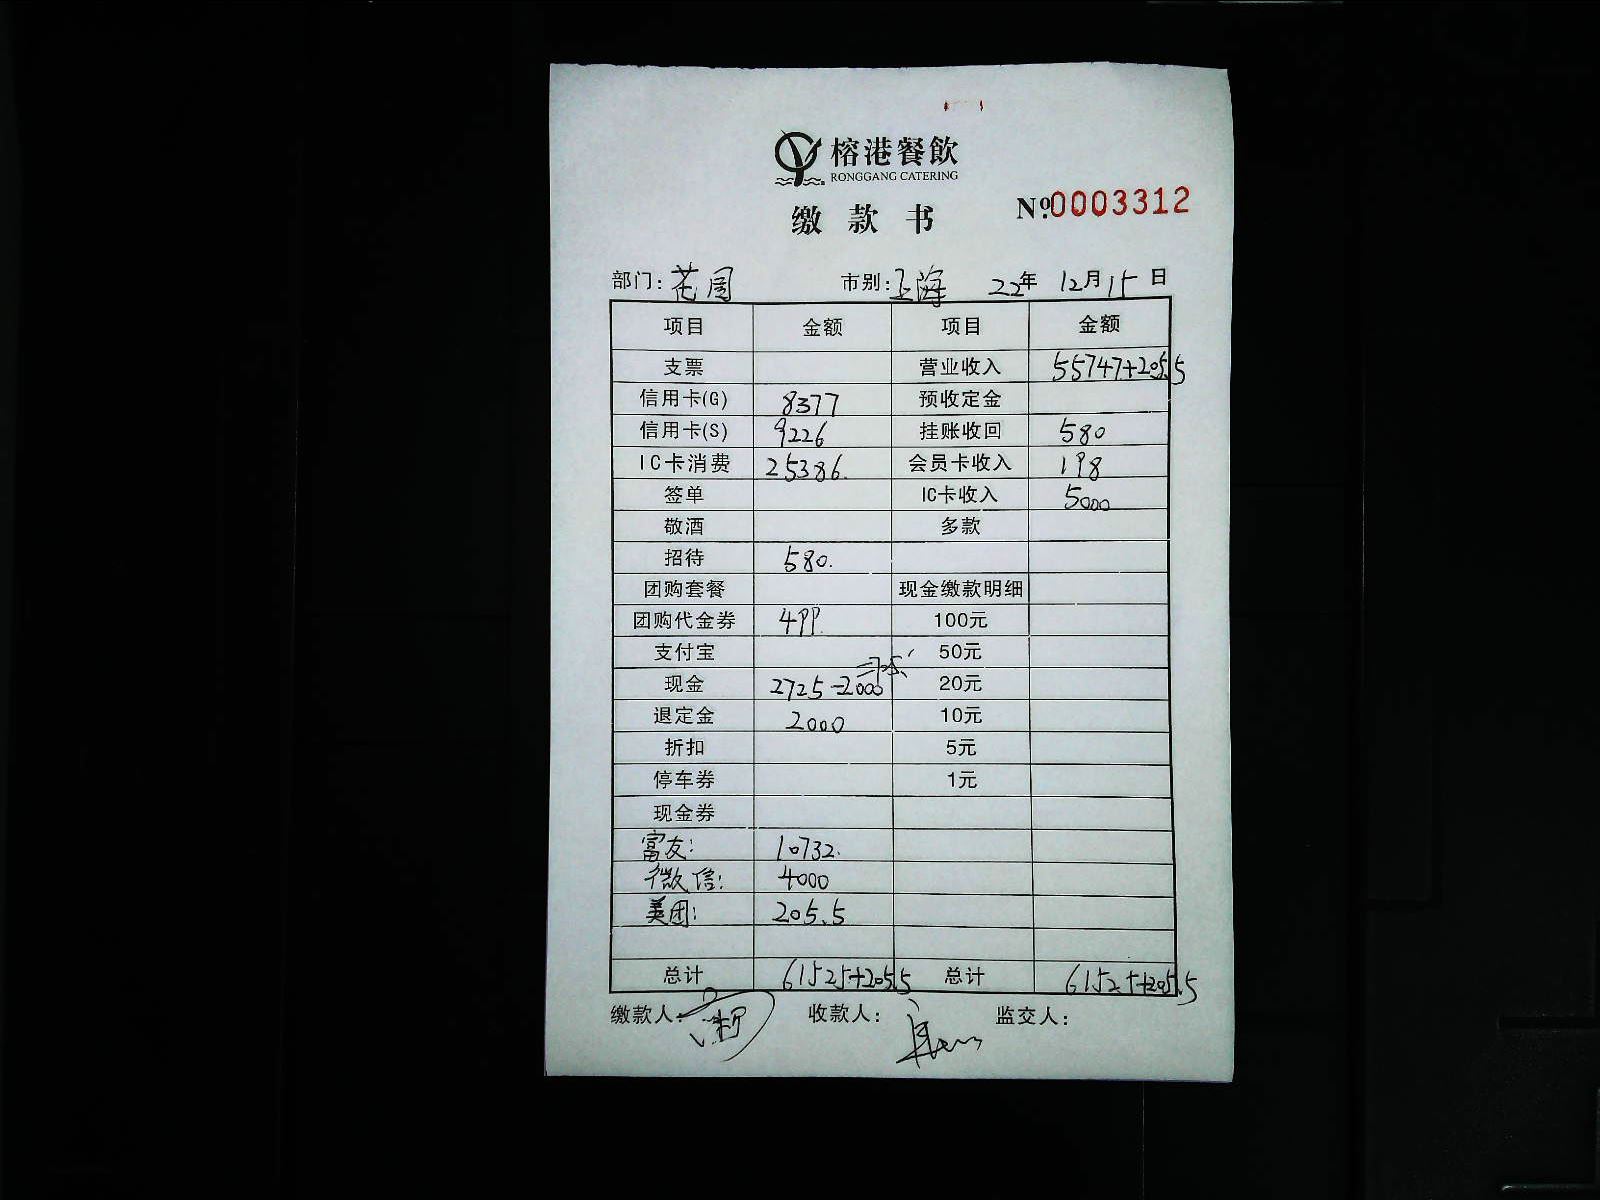 榕港餐飲
RONGGANG CATERING
缴款书 №0003312
部门：花园 市别：上海 22年 12月15日
项目 金额 项目 金额
支票 营业收入 55747+205.5
信用卡(G) 8377 预收定金
信用卡(S) 9226 挂账收回 580
IC卡消费 25386. 会员卡收入 198
签单 IC卡收入 5000
敬酒 多款
招待 580.
团购套餐 现金缴款明细
团购代金券 499. 100元
支付宝 50元
现金 2725-2000=725 20元
退定金 2000 10元
折扣 5元
停车券 1元
现金券
富友: 10732.
微信: 4000
美团: 205.5
总计 61525+205.5 总计 61525+205.5
缴款人： 收款人： 监交人：